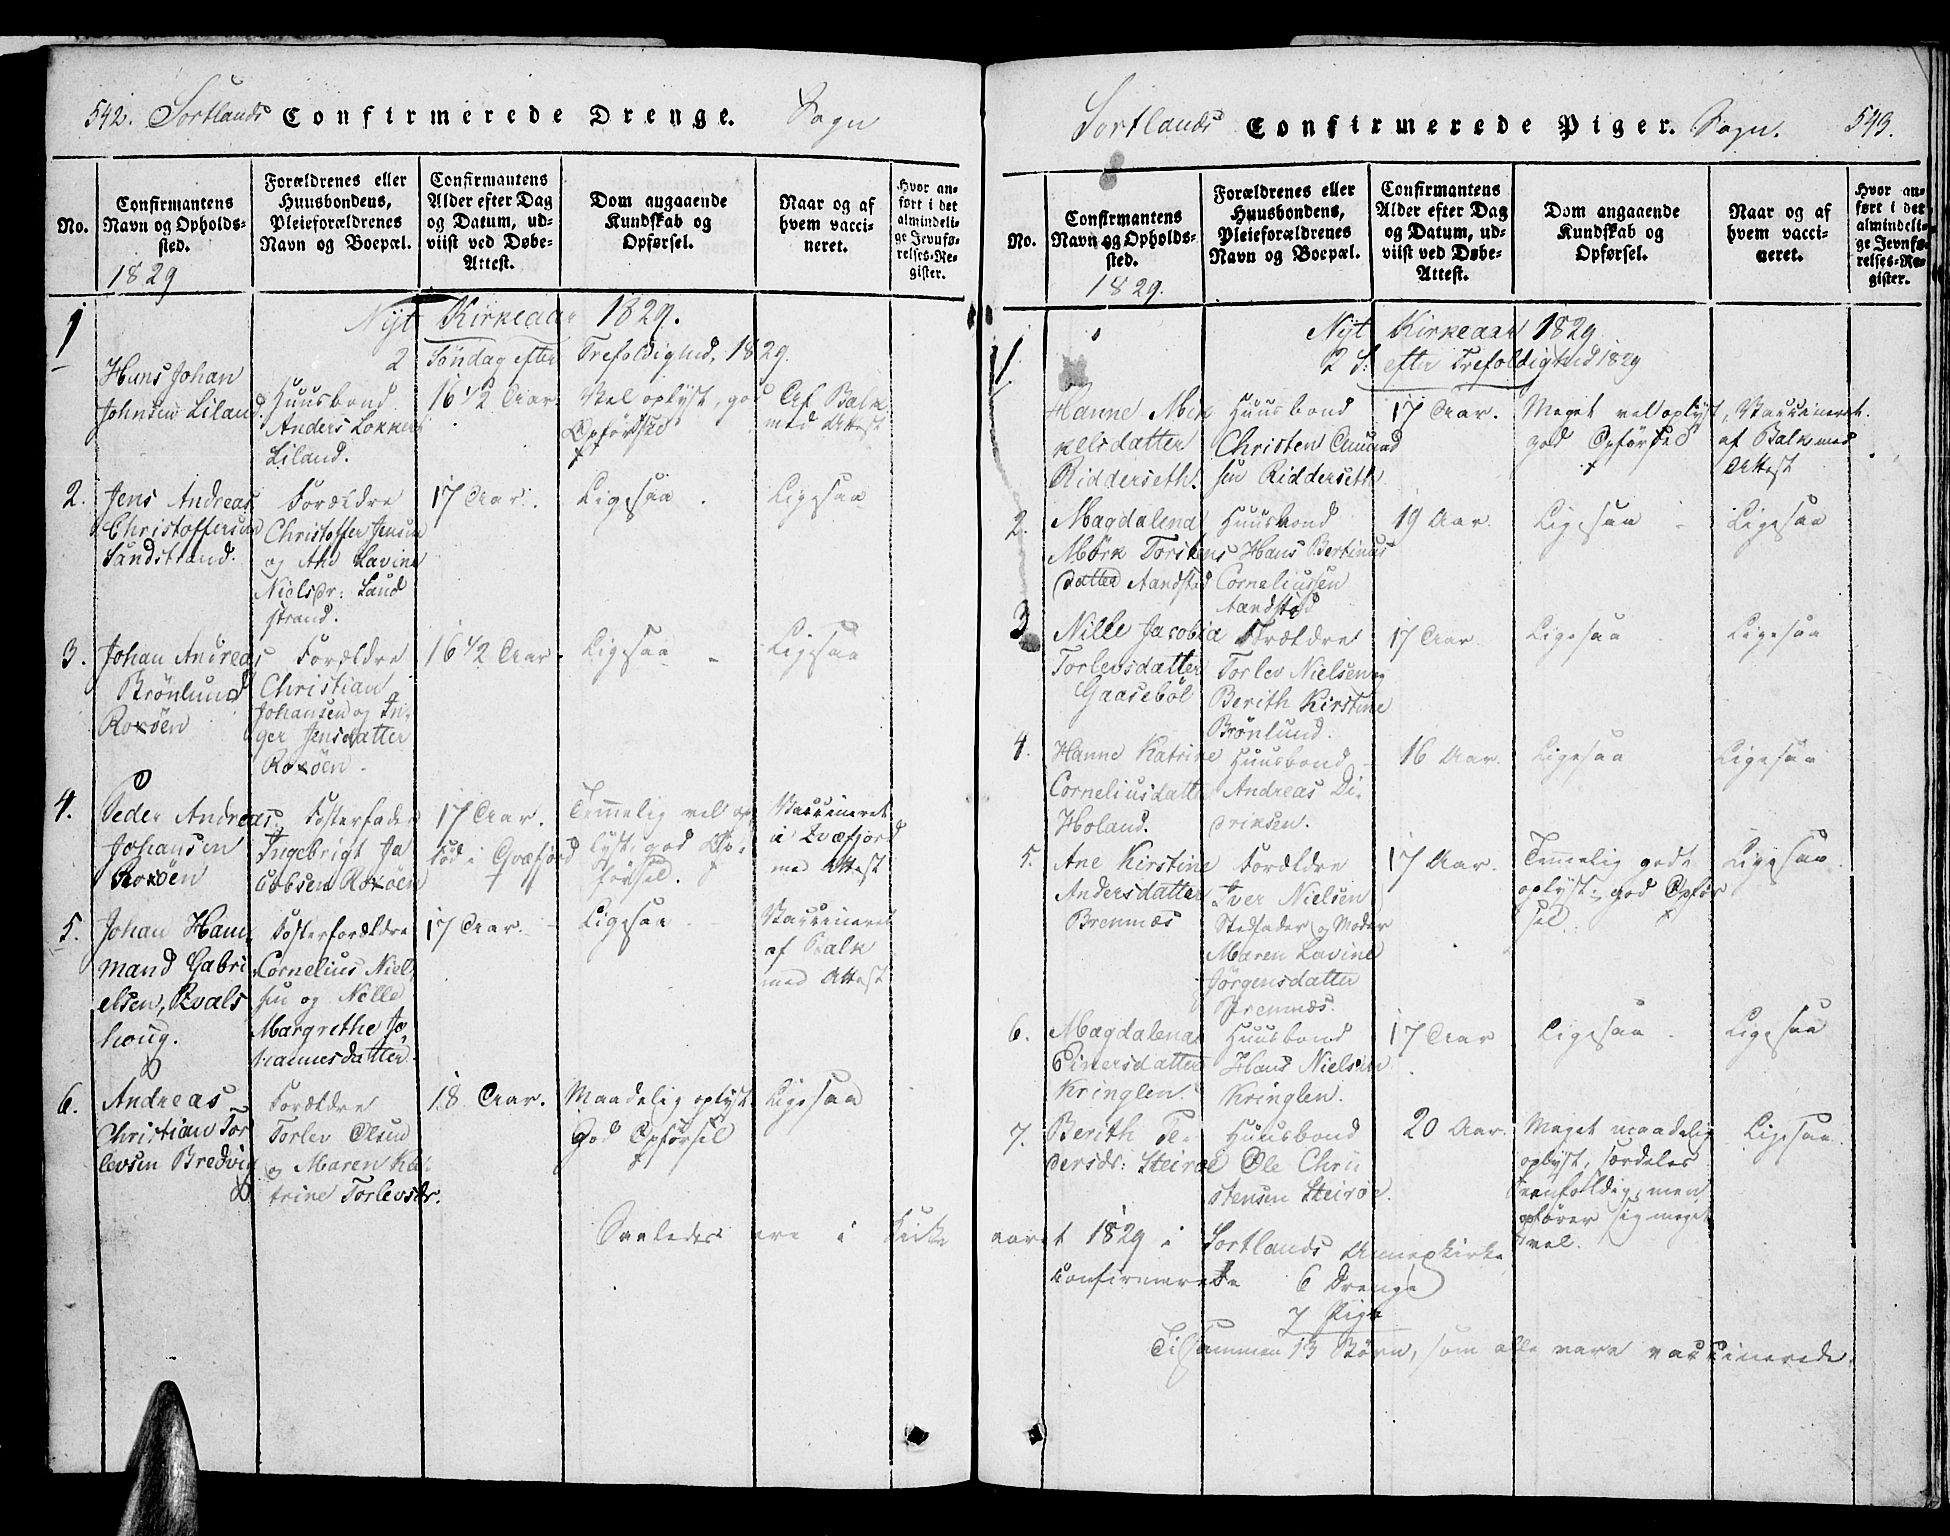 542. Sortlands Confirmerede Drenge. Sogn
No.
Confirmantens Navn og Opholds-
sted.
1829
Forældrenes eller
Huusbondens,
Pleieforældrenes
Navn og Boepæl.
Confirmantens
Alder efter Dag
og Datum, ud-
viist ved Døbe-
Attest.
Dom angaaende
Kundskab og
Opførsel.
Naar og af
hvem vacci-
neret.
Hvor an-
ført i det
almindeli-
ge Jevnfø-
relses-Re-
gister.
Nyt Kirkeaar 1829.
2 Søndag efter Trefoldighed, 1829.
1
Hans Johan
Johnsen Liland.
Huusbond
Anders
Liland.
16 1/2 Aar
Vel oplyst, god
Opførsel
Af Balk
med Attest
2. Jens Andreas
Christoffersen
Sandstrand.
Forældre
Christoffer Jensen
og Ane Lavine
Nielsdr: Sand
strand.
17 Aar.
Ligesaa
Ligesaa
3. Johan Andreas
Brönlund
Roxöen
Forældre
Christian
Johansen og In-
ger Jensdatter
Roxöen.
16 1/2 Aar
Ligesaa
Ligesaa
4. Peder Andreas
Johansen
Roxöen
Fosterfader
Ingebrigt Ja
cobsen Roxöen
17 Aar.
fød i Qvæfjord
Temmelig vel op
lyst, god Op-
førsel.
Vaccineret
i Qvæfjord
med Attest
5. Johan Ham
mand Gabri
elsen, Kvals
houg.
Fosterforældre
Cornelius Niel
sen og Nille
Margrethe Jo
hannesdatter
17 Aar.
Ligesaa
Vaccineret
af Balk
med Attest
6. Andreas
Christian Tor
levsen Bredvig
Forældre
Torlev Olsen
og Maren Ka
trine Torlevsdr.
18 Aar.
Maadelig oplyst
God Opførsel
Ligesaa
Saaledes ere i Kirke
Sortlands Confirmerede Piger. Sogn. 543.
No.
Confirmantens
Navn og Opholds-
sted.
1829.
Forældrenes eller
Huusbondens,
Pleieforældrenes
Navn og Boepæl.
Confirmantens
Alder efter Dag
og Datum, ud-
viist ved Døbe-
Attest.
Dom angaaende
Kundskab og
Opførsel.
Naar og af
hvem vacci-
neret.
Hvor an-
ført i det
almindeli-
ge Jevnfø-
relses-Re-
gister.
Nyt Kirkeaar 1829
2 S: efter Trefoldighed 1829
1.
Hanne Mik
kelsdatter
Ridderseth.
Huusbond
Christen Amund
sen Ridderseth
17 Aar.
Meget vel oplyst,
god Opførsel
Vaccineret
af Balk med
Attest
2. Magdalena
Mörk Torstens
datter Aandstad
Huusbond
Hans Bertinus
Corneliussen
Aandstad
19 Aar.
Ligesaa
Ligesaa
3 Nille Jacobia
Torlevsdatter
Gaasebøl
Forældre
Torlev Nielsen og
Berith Kirstine
Brönlund.
17 Aar.
Ligesaa
Ligesaa
4. Hanne Katrine
Corneliusdatter
Holand.
Huusbond
Andreas Di-
driksen.
16 Aar.
Ligesaa
Ligesaa
5. Ane Kirstine
Andersdatter
Bremnæs
Forældre
Iver Nielsen
Stedfader og Moder
Maren Lavine
Jörgensdatter
Bremnæs.
17 Aar.
Temmelig godt
oplyst, god Opfør
sel.
Ligesaa
6. Magdalena
Einersdatter
Kringlen.
Huusbond
Hans Nielsen
Kringlen.
17 Aar
Ligesaa
Ligesaa
7. Berith Pe-
dersdr: Steiroe
Huusbond
Ole Chri
stensen Steiröe.
20 Aar.
Meget maadelig
oplyst, særdeles
eenfoldig, men
opfører sig meget
vel.
Ligesaa
aaret 1829 i Sortlands Annexkirke
confirmerede 6 Drenge
7 Piger
Tilsammen 13 Børn, som alle vare vaccinerede.